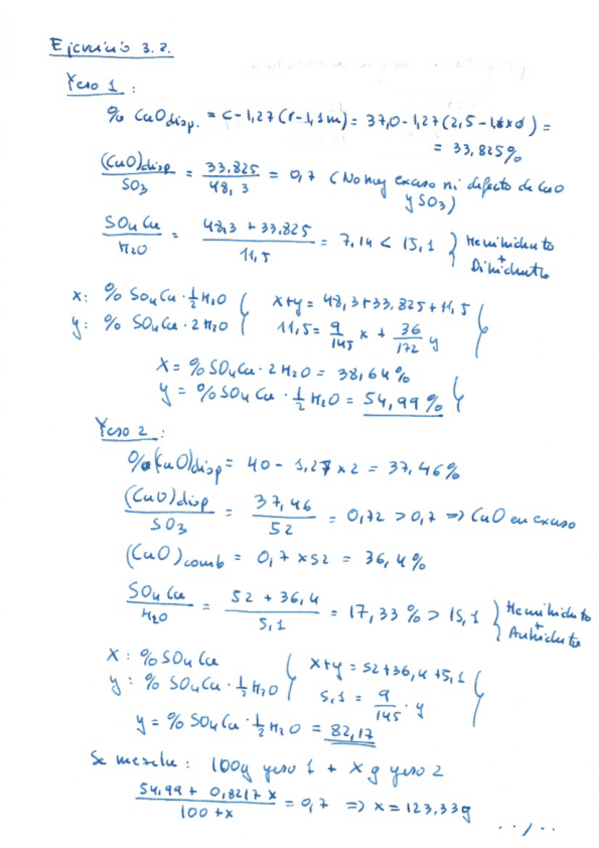 Ejercicio 3.2.
Yeso 1:
% CaO disp. = c-1,27(r-1,1m) = 37,0-1,27(2,5-1,1x0) =
= 33,825%
(CaO)disp / SO3 = 33.825 / 48,3 = 0,7 (No hay exceso ni defecto de CaO
y SO3)
SO4Ca / H2O = 48,3 + 33.825 / 11,5 = 7,14 < 15,1 } Hemihidrato
+
Dihidrato
x: % SO4Ca·½H2O { x+y = 48,3+33.825+11,5
y: % SO4Ca·2H2O { 11,5 = 9/145 x + 36/172 y
x = % SO4Ca·2H2O = 38,64%
y = % SO4Ca·½H2O = 54,99%
Yeso 2:
% (CaO)disp = 40 - 1,27 x 2 = 37,46%
(CaO)disp / SO3 = 37,46 / 52 = 0,72 > 0,7 => CaO en exceso
(CaO)comb = 0,7 x 52 = 36,4%
SO4Ca / H2O = 52 + 36,4 / 5,1 = 17,33% > 15,1 } Hemihidrato
+
Anhidrita
x: % SO4Ca { x+y = 52+36,4+5,1
y: % SO4Ca·½H2O { 5,1 = 9/145·y
y = % SO4Ca·½H2O = 82,17
Se mezcla: 100g yeso 1 + x g yeso 2
54,99 + 0,8217x / 100+x = 0,7 => x = 123,33g
../..